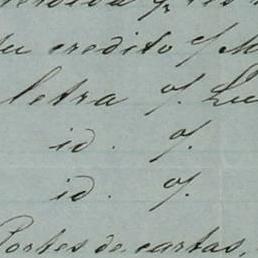 su credito c/ M
letra c/. Lu
id. c/.
id. c/.
Portes de cartas,